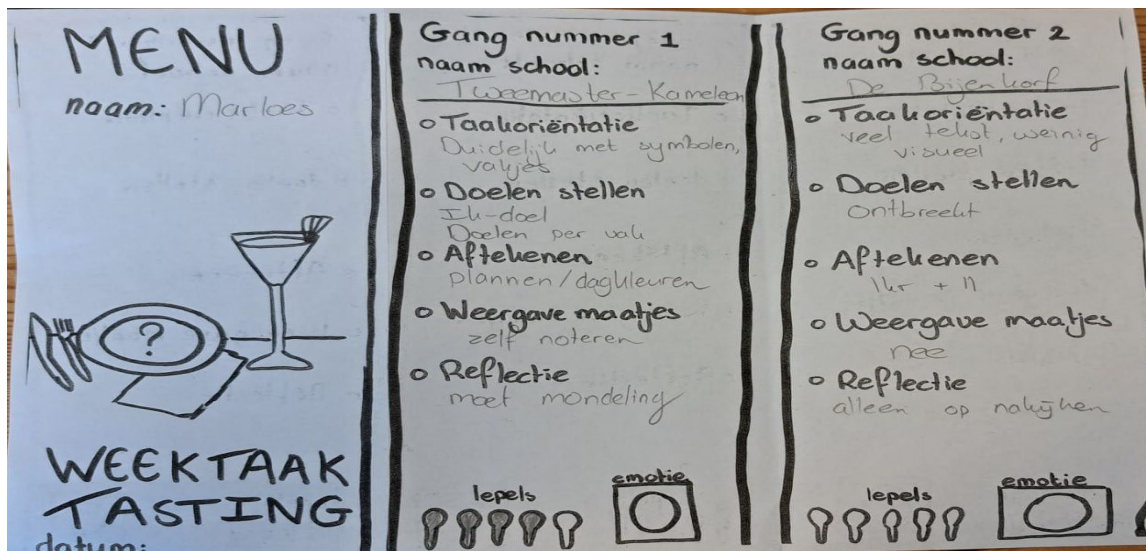 MENU
naam: Marloes
WEEKTAAK
TASTING
datum:
Gang nummer 1
naam school:
Tweemaster-Kameleon
Taakoriëntatie
Duidelijk met symbolen,
vakjes
Doelen stellen
Ik-doel
Doelen per vak
Aftekenen
plannen/dagkleuren
Weergave maatjes
zelf noteren
Reflectie
moet mondeling
lepels
emotie
Gang nummer 2
naam school:
De Bijenkorf
Taakoriëntatie
veel tekst, weinig
visueel
Doelen stellen
ontbreekt
Aftekenen
1kr + n
Weergave maatjes
nee
Reflectie
alleen op nakijken
lepels
emotie